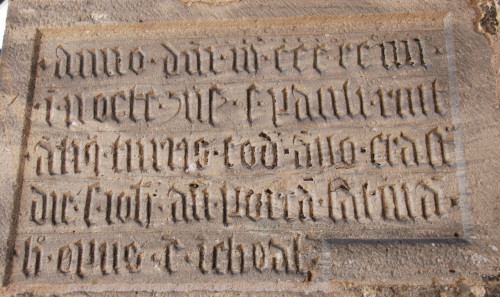 anno · dni · m̊ · ccc̊ · lc iiii ·
· i · nocte · ꝯūs · s · pauli · ruit
antiq · turris · eod · ano · crasti
die · s · ioh · an · porta · lat · ma ·
h · opus · e · ichoat